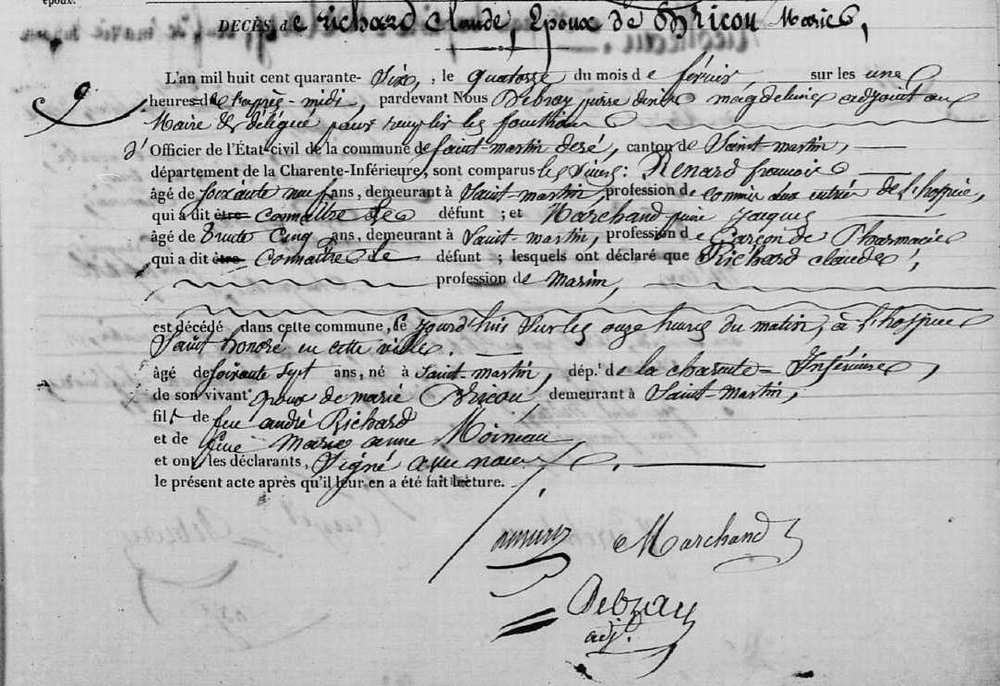 époux.
DÉCÈS de Richard Claude, Epoux de Bricou Marie,
9
L'an mil huit cent quarante-Six, le quatorze du mois de février, sur les une
heures de l'après-midi, pardevant Nous Debray pierre magdeleine adjoint au
Maire & délégué pour remplir les fonctions
d'Officier de l'État-civil de la commune de Saint-martin deré, canton de Saint-martin,
département de la Charente-Inférieure, sont comparus les Sieurs : Renard françois
âgé de soixante neuf ans, demeurant à Saint-martin, profession de commis aux entrées de l'hospice,
qui a dit être connaître le défunt ; et Marchand jacques
âgé de trente Cinq ans, demeurant à Saint-martin, profession de Garçon de Pharmacie
qui a dit être Connaître le défunt ; lesquels ont déclaré que Richard Claude,
profession de marin,
est décédé dans cette commune, ce jourd'hui sur les onze heures du matin, à l'hospice
Saint honoré en cette ville.
âgé de soixante sept ans, né à Saint-martin, dép.t de la charente-Inférieure,
de son vivant époux de marie Bricou demeurant à Saint-martin,
fils de feu andré Richard
et de feue Marie anne Moineau,
et ont les déclarants, Signé avec nous
le présent acte après qu'il leur en a été fait lecture.
Marchand
Debray
adj.t